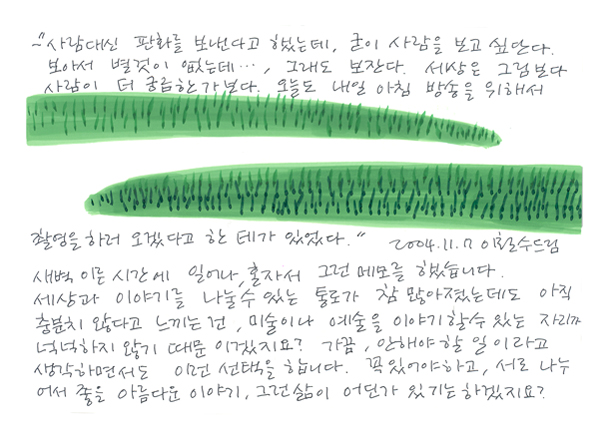 ~"사람대신 판화를 보낸다고 했는데, 굳이 사람을 보고 싶단다.
보아서 별것이 없는데…, 그래도 보잔다. 세상은 그림보다
사람이 더 궁금한가보다. 오늘도 내일 아침 방송을 위해서
촬영을 하러 오겠다고 한 데가 있었다." 2004.11.17 이철수드림
새벽 이른 시간에 일어나, 혼자서 그런 메모를 했습니다.
세상과 이야기를 나눌 수 있는 통로가 참 많아졌는데도 아직
충분치 않다고 느끼는 건, 미술이나 예술을 이야기할 수 있는 자리가
넉넉하지 않기 때문이겠지요? 가끔, 안해야 할 일이라고
생각하면서도 이런 선택을 합니다. 꼭 있어야하고, 서로 나누
어서 좋을 아름다운 이야기, 그런 삶이 어딘가 있기는 하겠지요?